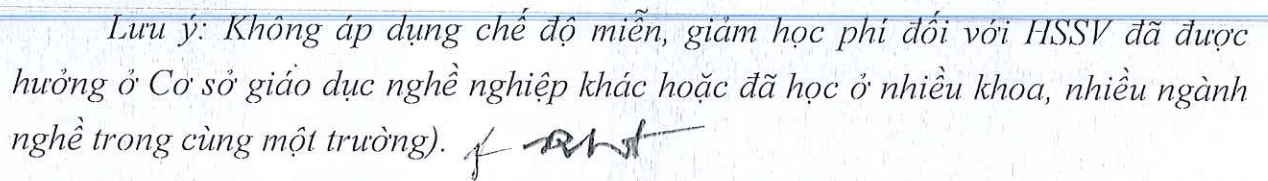 Lưu ý: Không áp dụng chế độ miễn, giảm học phí đối với HSSV đã được
hưởng ở Cơ sở giáo dục nghề nghiệp khác hoặc đã học ở nhiều khoa, nhiều ngành
nghề trong cùng một trường).